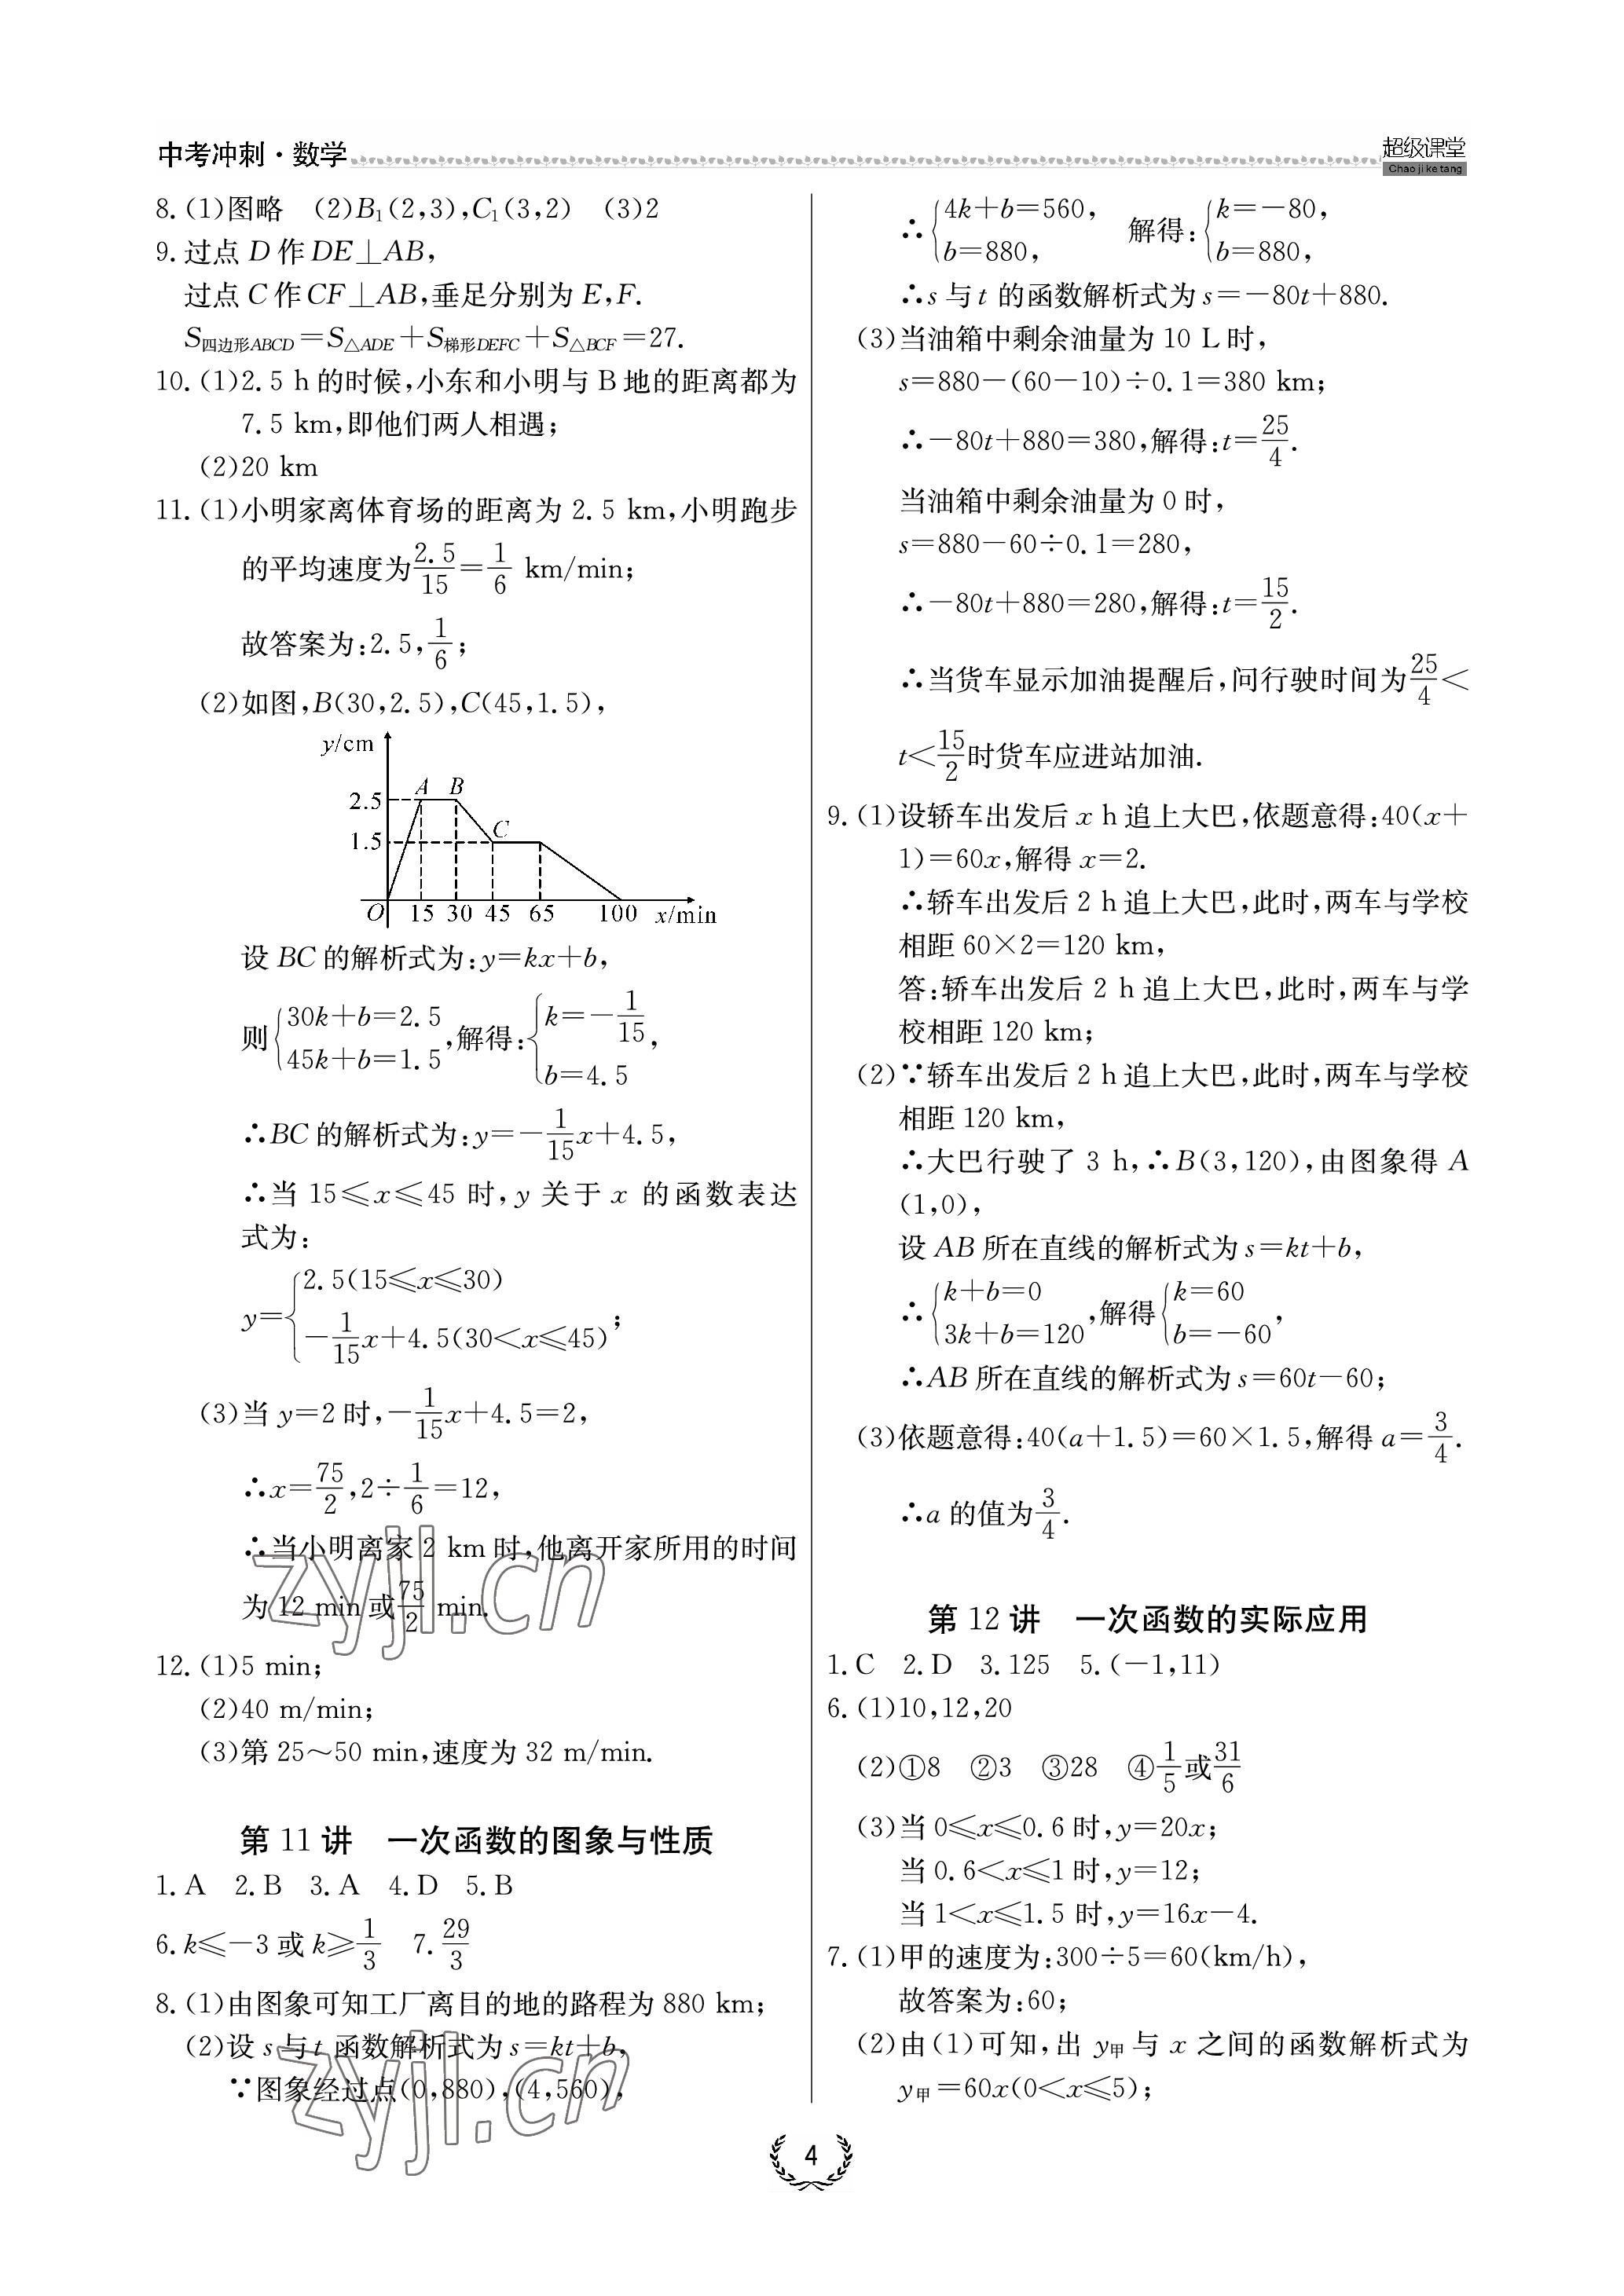 中考冲刺·数学
超级课堂
Chao ji ke tang
8.(1)图略 (2)B₁(2,3),C₁(3,2) (3)2
9.过点 D 作 DE⊥AB,
过点 C 作 CF⊥AB,垂足分别为 E,F.
S四边形ABCD=S△ADE+S梯形DEFC+S△BCF=27.
10.(1)2.5 h 的时候,小东和小明与 B 地的距离都为
7.5 km,即他们两人相遇;
(2)20 km
11.(1)小明家离体育场的距离为 2.5 km,小明跑步
的平均速度为2.5/15=1/6 km/min;
故答案为:2.5,1/6;
(2)如图,B(30,2.5),C(45,1.5),
y/cm
A B
2.5
C
1.5
O 15 30 45 65 100 x/min
设 BC 的解析式为:y=kx+b,
则{30k+b=2.5 45k+b=1.5,解得:{k=-1/15 b=4.5,
∴BC 的解析式为:y=-1/15x+4.5,
∴当 15≤x≤45 时,y 关于 x 的函数表达
式为:
y={2.5(15≤x≤30) -1/15x+4.5(30<x≤45);
(3)当 y=2 时,-1/15x+4.5=2,
∴x=75/2,2÷1/6=12,
∴当小明离家 2 km 时,他离开家所用的时间
为 12 min 或75/2 min.
12.(1)5 min;
(2)40 m/min;
(3)第 25～50 min,速度为 32 m/min.
第 11 讲 一次函数的图象与性质
1.A 2.B 3.A 4.D 5.B
6.k≤-3 或 k≥1/3 7.29/3
8.(1)由图象可知工厂离目的地的路程为 880 km;
(2)设 s 与 t 函数解析式为 s=kt+b,
∵图象经过点(0,880),(4,560),
∴{4k+b=560, b=880, 解得:{k=-80, b=880,
∴s 与 t 的函数解析式为 s=-80t+880.
(3)当油箱中剩余油量为 10 L 时,
s=880-(60-10)÷0.1=380 km;
∴-80t+880=380,解得:t=25/4.
当油箱中剩余油量为 0 时,
s=880-60÷0.1=280,
∴-80t+880=280,解得:t=15/2.
∴当货车显示加油提醒后,问行驶时间为25/4<
t<15/2时货车应进站加油.
9.(1)设轿车出发后 x h 追上大巴,依题意得:40(x+
1)=60x,解得 x=2.
∴轿车出发后 2 h 追上大巴,此时,两车与学校
相距 60×2=120 km,
答:轿车出发后 2 h 追上大巴,此时,两车与学
校相距 120 km;
(2)∵轿车出发后 2 h 追上大巴,此时,两车与学校
相距 120 km,
∴大巴行驶了 3 h,∴B(3,120),由图象得 A
(1,0),
设 AB 所在直线的解析式为 s=kt+b,
∴{k+b=0 3k+b=120,解得{k=60 b=-60,
∴AB 所在直线的解析式为 s=60t-60;
(3)依题意得:40(a+1.5)=60×1.5,解得 a=3/4.
∴a 的值为3/4.
第 12 讲 一次函数的实际应用
1.C 2.D 3.125 5.(-1,11)
6.(1)10,12,20
(2)①8 ②3 ③28 ④1/5或31/6
(3)当 0≤x≤0.6 时,y=20x;
当 0.6<x≤1 时,y=12;
当 1<x≤1.5 时,y=16x-4.
7.(1)甲的速度为:300÷5=60(km/h),
故答案为:60;
(2)由(1)可知,出 y甲 与 x 之间的函数解析式为
y甲=60x(0<x≤5);
4
zyjl.cn
zyjl.cn